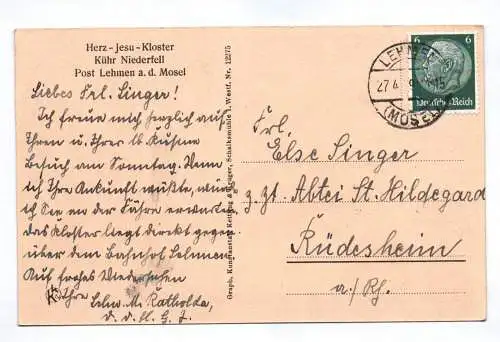 Herz-Jesu-Kloster
Kühr Niederfell
Post Lehmen a. d. Mosel
Liebes Frl. Singer!
Ich freue mich herzlich auf
Ihren u. Ihrer lb Kusine
Besuch am Sonntag. Wenn
ich Ihre Ankunft wüßte, würde
ich Sie an der Fähre erwarten
das Kloster liegt direkt gegen-
über dem Bahnhof Lehmen.
Auf frohes Wiedersehen
Ihre
Schw. M.
Graph. Kunstanstalt Schalksmühle i. Westf. Nr. 12/75
LEHMEN
27.4
(MOSEL)
6 6
Deutsches Reich
Frl.
Else Singer
z. Zt. Abtei St. Hildegard
Rüdesheim
a./Rh.